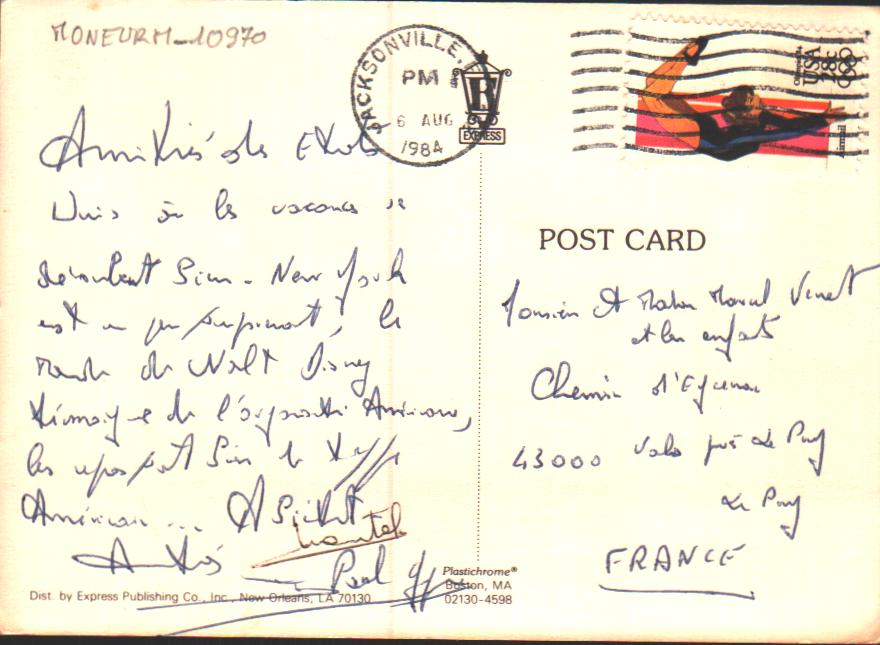 MONEURM-10970
JACKSONVILLE,
PM
6 AUG
1984
E
EXPRESS
Olympics
USA
28c
Airmail
Amitiés des Etats
Unis où les vacances se
déroulent bien. New York
est un peu surprenant, le
Monde de Walt Disney
témoigne de l'organisation Américaine,
les repas sont bien le
Américain... A Bientôt
Amitiés
Chantal
Paul
POST CARD
Monsieur et Madame Marcel
et les enfants
Chemin d'
43000 Vals près Le Puy
Le Puy
FRANCE
Plastichrome®
Boston, MA
02130-4598
Dist. by Express Publishing Co., Inc., New Orleans, LA 70130